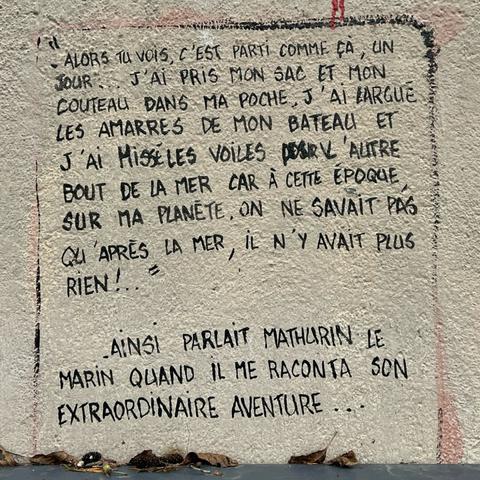 "ALORS TU VOIS, C'EST PARTI COMME ÇA, UN
JOUR... J'AI PRIS MON SAC ET MON
COUTEAU DANS MA POCHE. J'AI LARGUÉ
LES AMARRES DE MON BATEAU ET
J'AI HISSÉ LES VOILES POUR L'AUTRE
BOUT DE LA MER CAR À CETTE ÉPOQUE,
SUR MA PLANÈTE, ON NE SAVAIT PAS
QU'APRÈS LA MER, IL N'Y AVAIT PLUS
RIEN!.. "
AINSI PARLAIT MATHURIN LE
MARIN QUAND IL ME RACONTA SON
EXTRAORDINAIRE AVENTURE ...